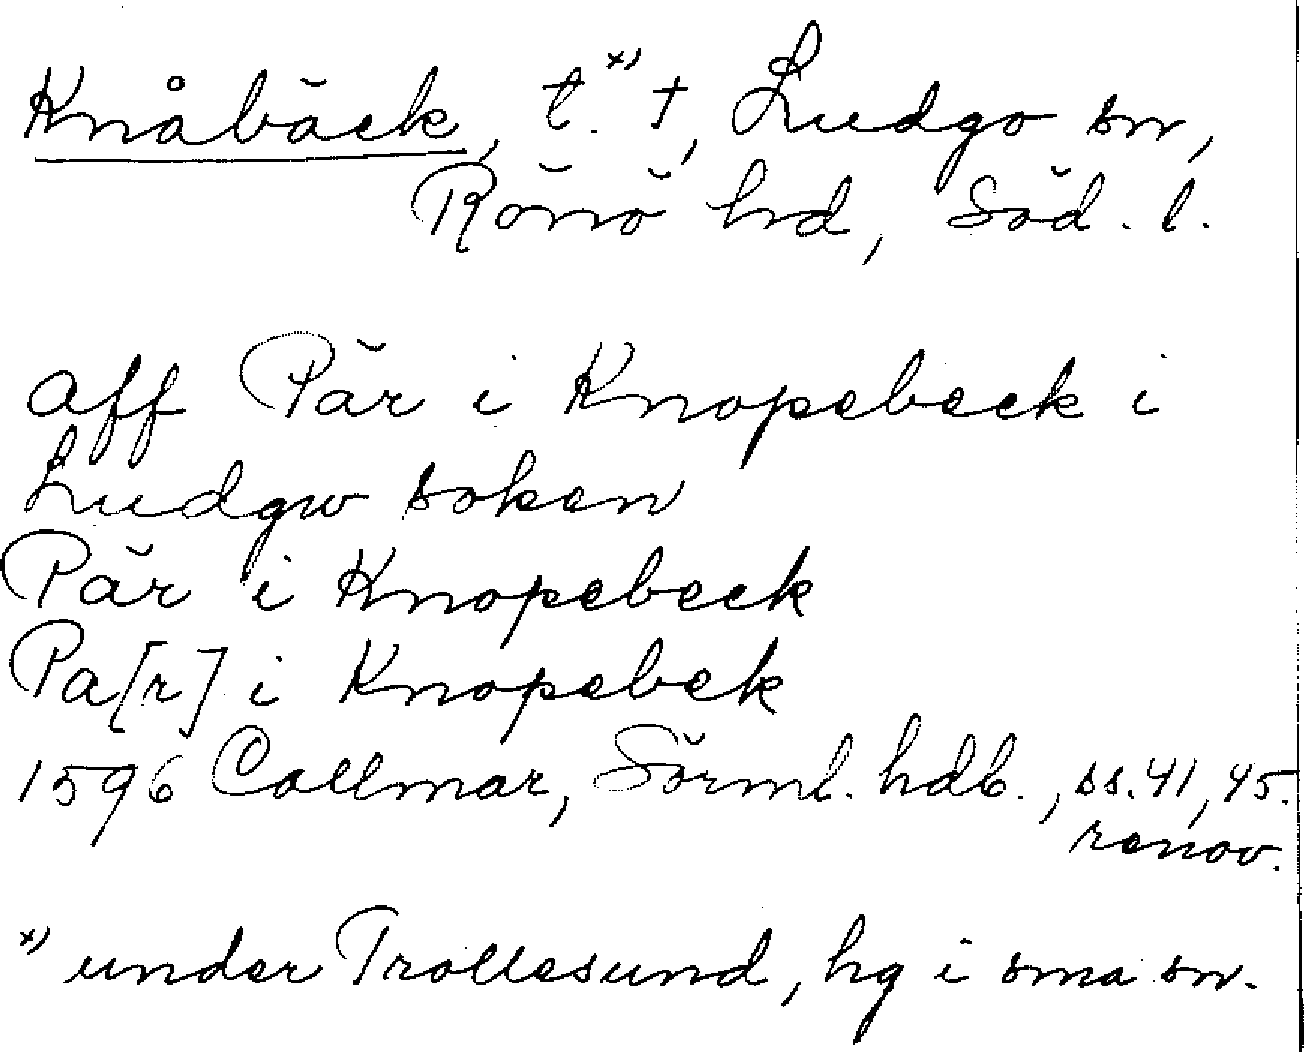 Knåbäck, t.*) †, Ludgo sn,
Rönö hd, Söd. l.
aff Pär i Knopebeck i
Ludgw soken
Pär i Knopebeck
Pa[r] i Knopebek
1596 Collmar, Sörml. hdb., ss. 41, 45.
renov.
*) under Trollesund, hg i sma sn.